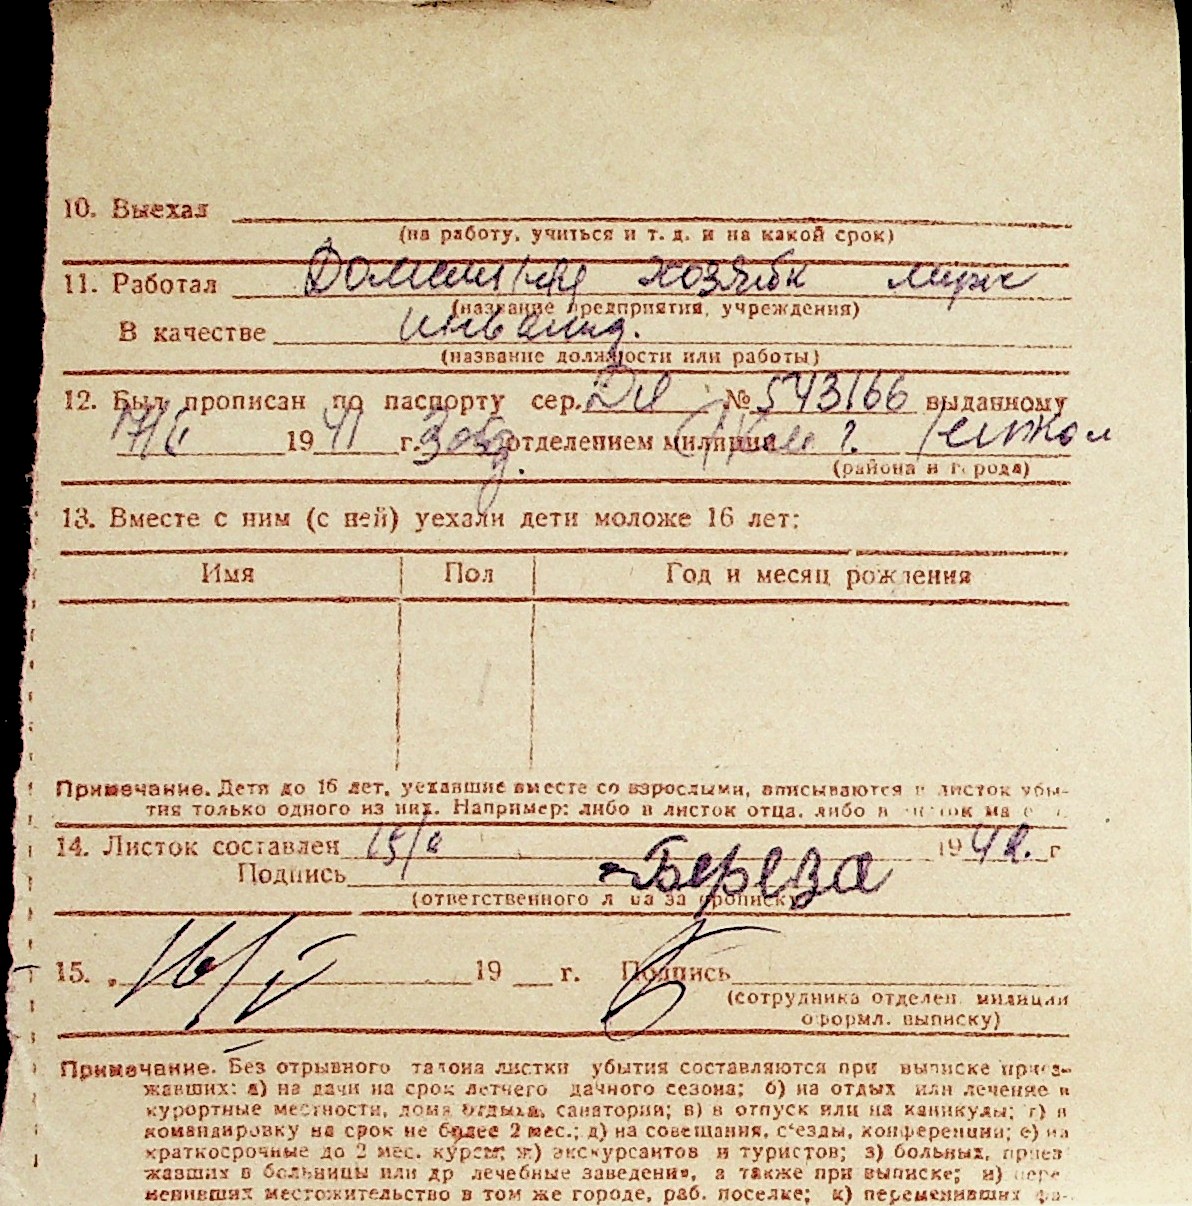 10. Выехал
(на работу, учиться и т. д. и на какой срок)
11. Работал Домашняя хозяйк
(название предприятия, учреждения)
В качестве инвалид.
(название должности или работы)
12. Был прописан по паспорту сер. № 543166 выданному
1941 г. отделением милиции
(района и города)
13. Вместе с ним (с ней) уехали дети моложе 16 лет:
Имя Пол Год и месяц рождения
Примечание. Дети до 16 лет, уехавшие вместе со взрослыми, вписываются в листок убы-
тия только одного из них. Например: либо в листок отца, либо в листок ма
14. Листок составлен 194 г
Подпись Береза
(ответственного лица за прописку)
15. 16/V 19 г. Подпись
(сотрудника отделен. милиции
оформл. выписку)
Примечание. Без отрывного талона листки убытия составляются при выписке приез-
жавших: а) на дачи на срок летнего дачного сезона; б) на отдых или лечение в
курортные местности, дома отдыха, санатории; в) в отпуск или на каникулы; г) в
командировку на срок не более 2 мес.; д) на совещания, с'езды, конференции; е) на
краткосрочные до 2 мес. курсы; ж) экскурсантов и туристов; з) больных, приез
жавших в больницы или др лечебные заведения, а также при выписке; и) пере-
менивших местожительство в том же городе, раб. поселке; к) переменивших фа-